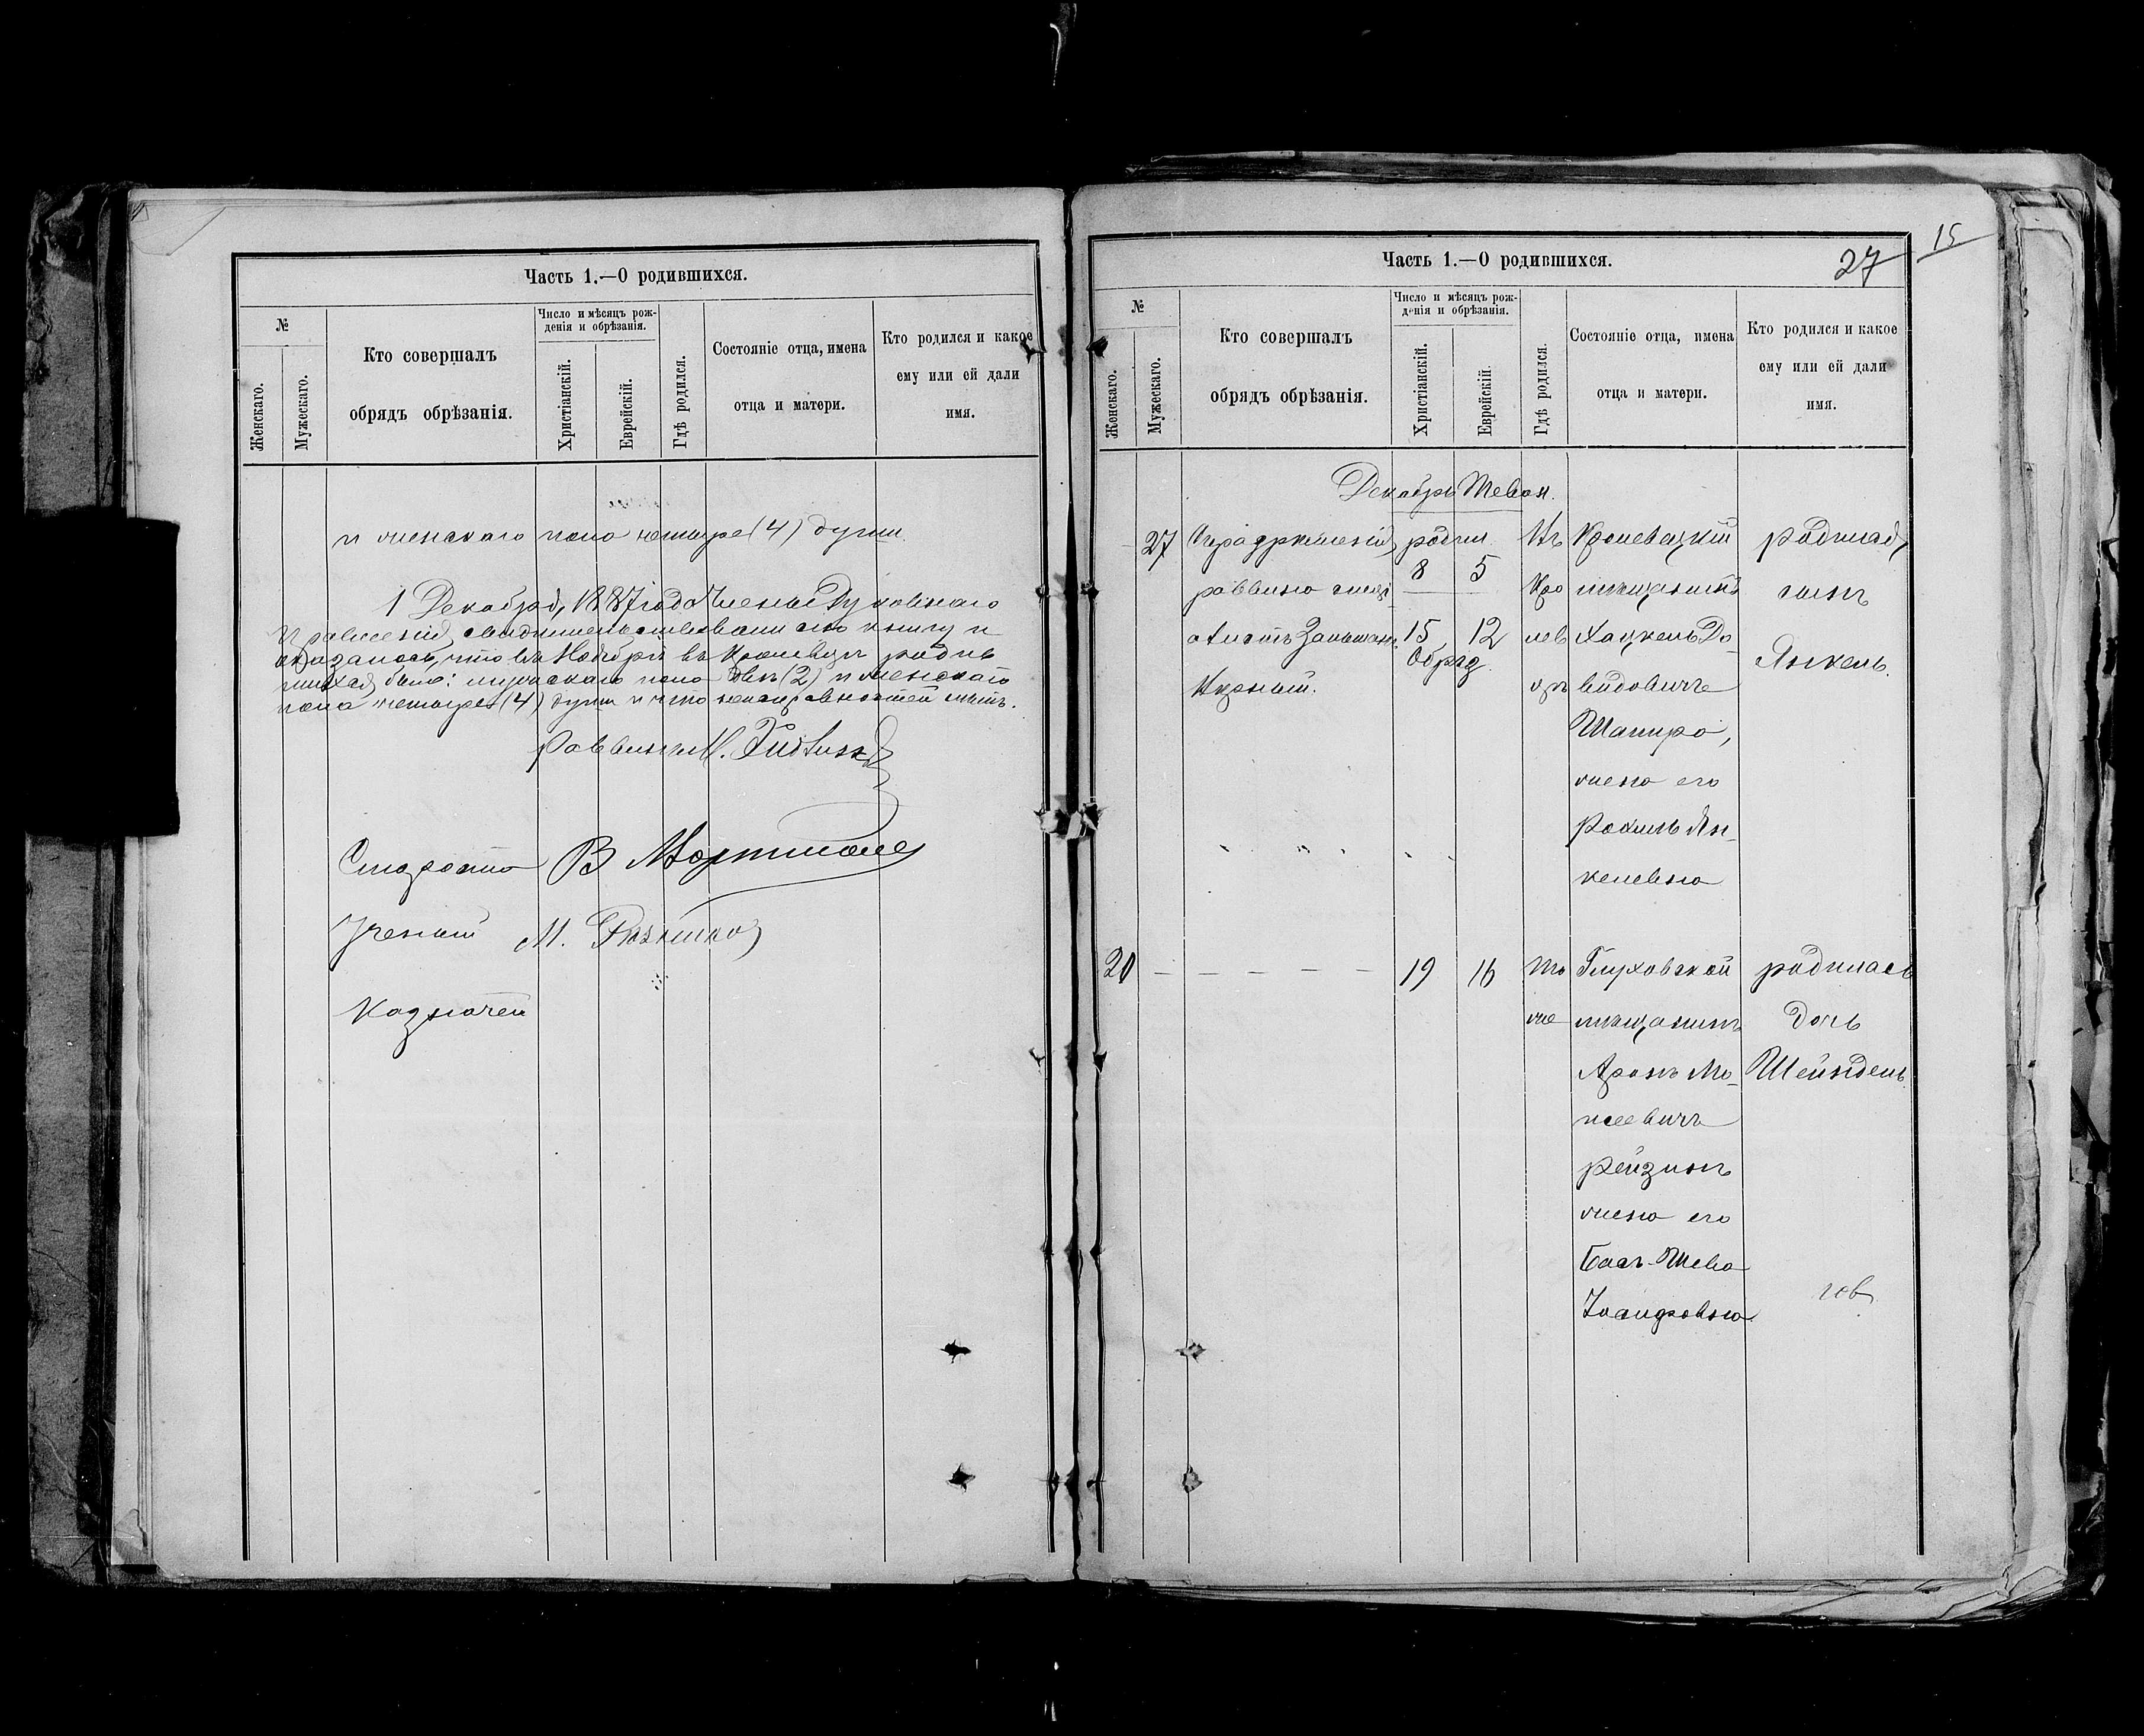 Часть 1.—О родившихся.
№
Женскаго.
Мужескаго.
Кто совершалъ
обрядъ обрѣзанія.
Число и мѣсяцъ рож-
денія и обрѣзанія.
Христіанскій.
Еврейскій.
Гдѣ родился.
Состояніе отца, имена
отца и матери.
Кто родился и какое
ему или ей дали
имя.
и женскаго пола четыре (4) души.
1 Декабря, 1887 года Члены Духовнаго
Правленія, свидѣтельствовали сію книгу и
оказалось, что въ Ноябрѣ въ Кролевцѣ родив
шихся было: мужскаго пола двѣ (2) и женскаго
пола четыре (4) души и что неисправностей нѣтъ.
Раввинъ
Староста В
Ученый М.
Казначей
15
27
Часть 1.—О родившихся.
№
Женскаго.
Мужескаго.
Кто совершалъ
обрядъ обрѣзанія.
Число и мѣсяцъ рож-
денія и обрѣзанія.
Христіанскій.
Еврейскій.
Гдѣ родился.
Состояніе отца, имена
отца и матери.
Кто родился и какое
ему или ей дали
имя.
Декабрь Тевеѳ.
27
раввина
Залманъ
родил
8 5
15 12
Обряд
Въ
Кро
лев
цѣ
Кролевецкій
мѣщанинъ
Хацкель Да-
видовичъ
Шапиро,
жена его
Рохиль Ян-
келевна
родился,
сынъ
Янкель.
20 — — — — — 19 16
То
же
Глуховской
мѣщанинъ
Аронъ Мо-
исеевичъ
Рейзинъ
жена его
Бася-Шева
родилась
дочь
Шейндель.